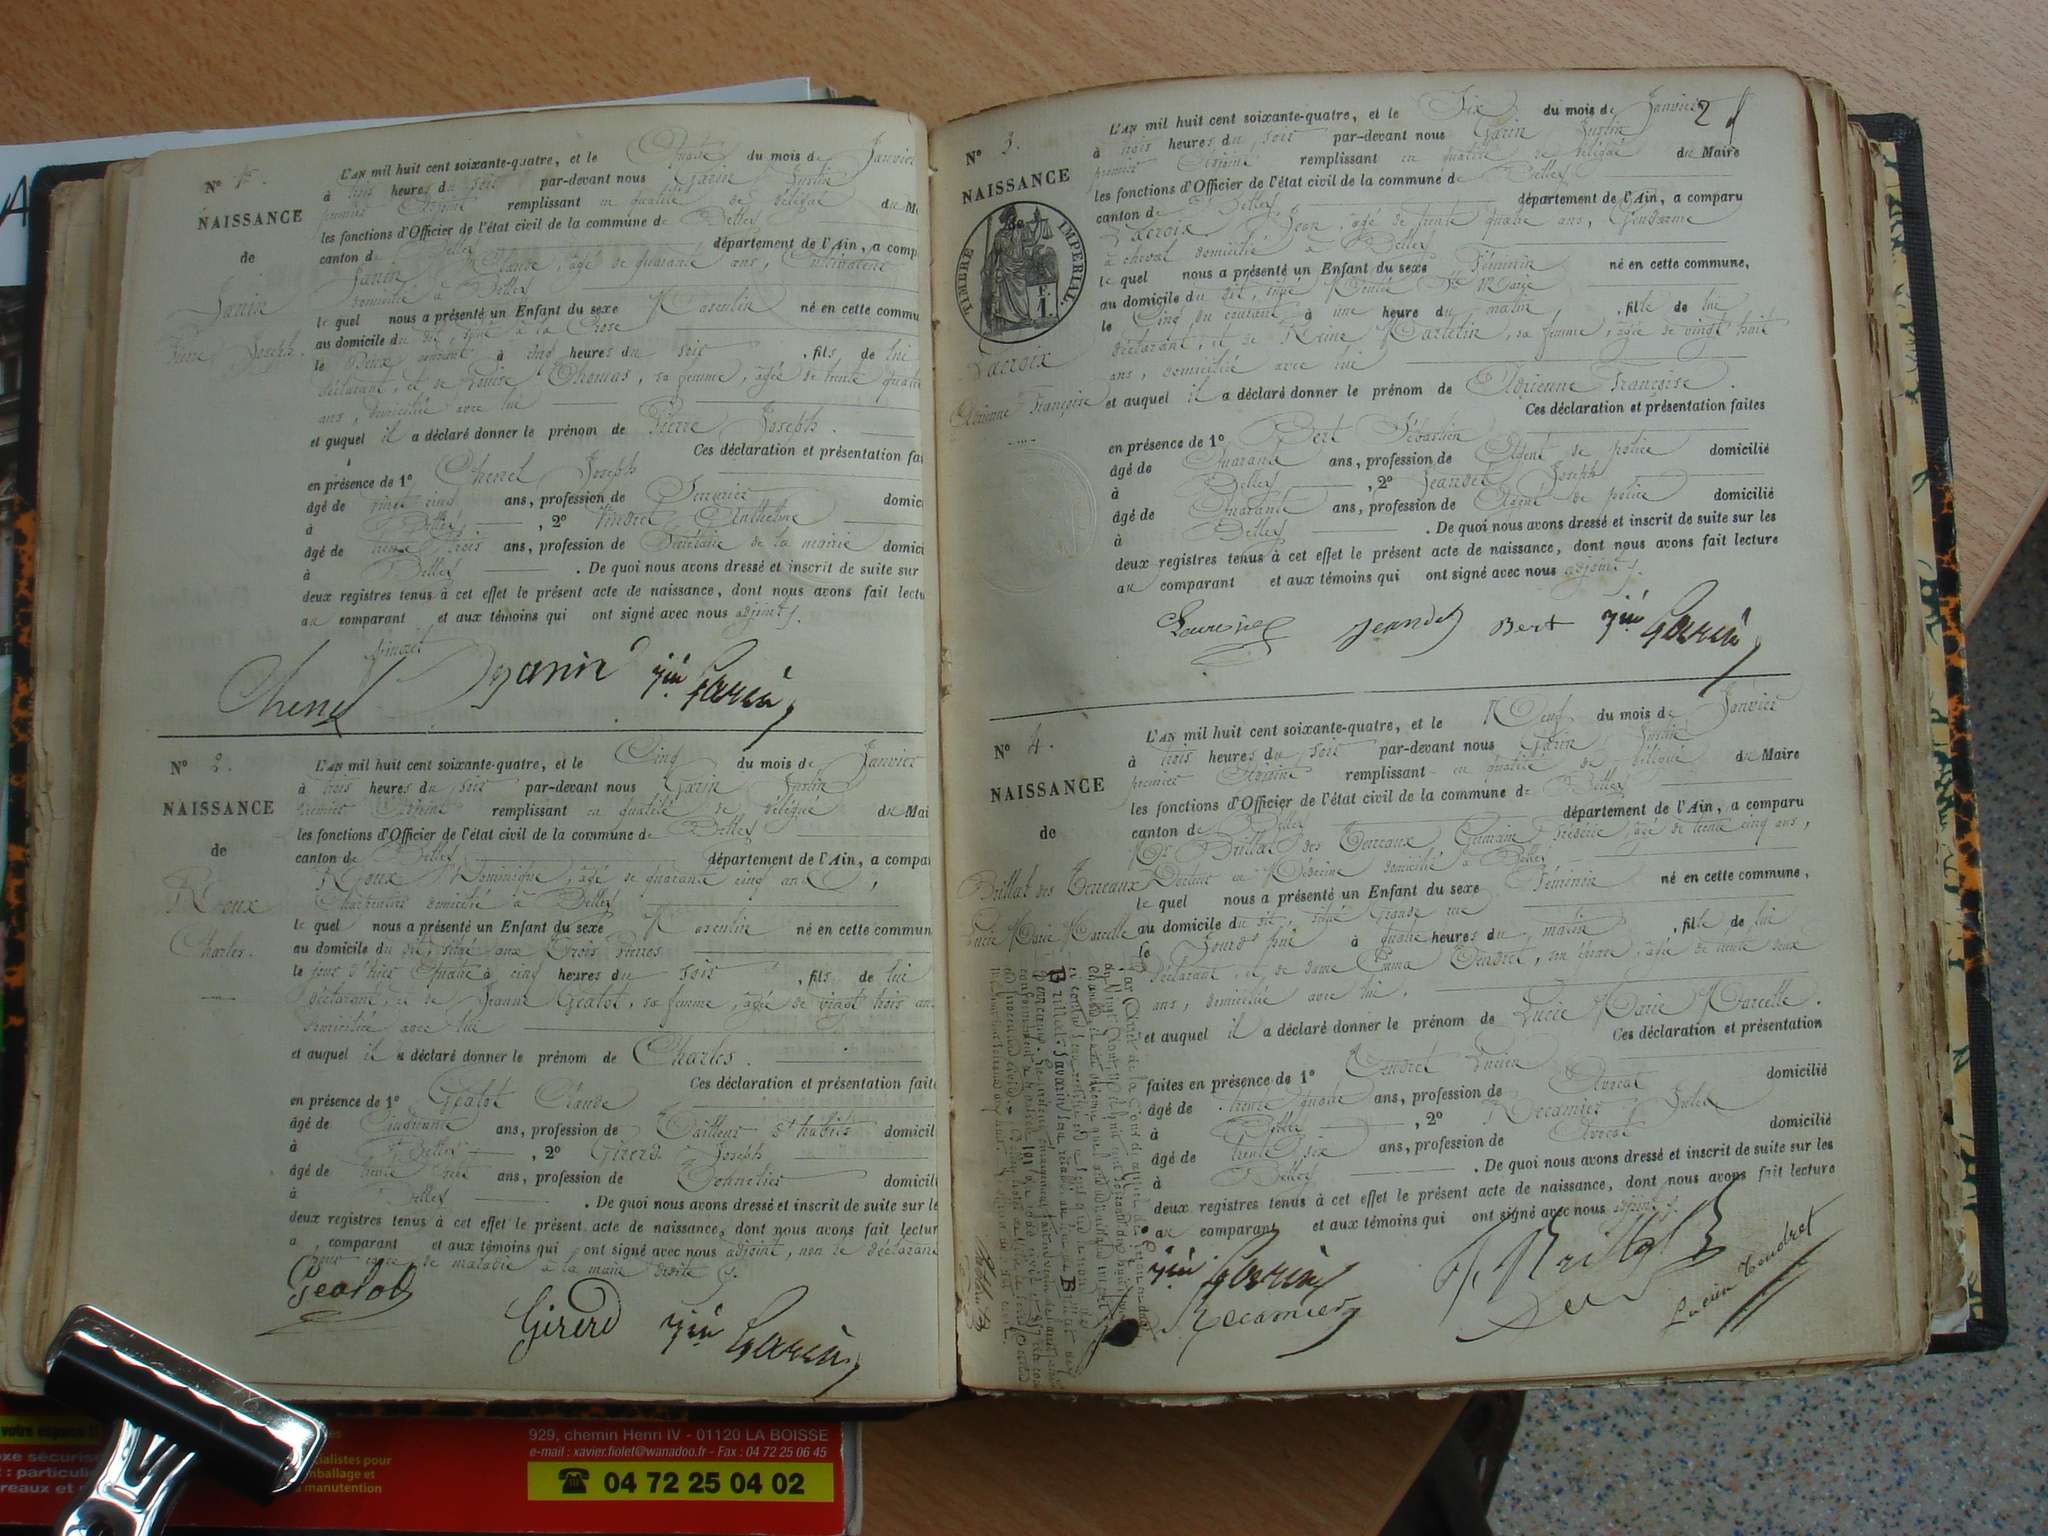 Nº 1.
NAISSANCE
de
Janin
Pierre Joseph.
L'AN mil huit cent soixante-quatre, et le Quatre du mois de Janvier
à trois heures du soir par-devant nous Garin Justin
premier Adjoint remplissant en qualité de délégué du M
les fonctions d'Officier de l'état civil de la commune de Belley
canton de Belley département de l'Ain, a comp
Janin Claude, âgé de quarante ans, Cultivateur
domicilié à Belley
le quel nous a présenté un Enfant du sexe Masculin né en cette commu
au domicile du dit, situé à la Crose
le Deux courant à cinq heures du soir, fils de lui
déclarant, et de Louise Thomas, sa femme, âgée de trente quatre
ans, domiciliée avec lui
et auquel il a déclaré donner le prénom de Pierre Joseph.
Ces déclaration et présentation fai
en présence de 1º Chenel Joseph
âgé de vingt cinq ans, profession de Serrurier domici
à Belley, 2º Anthelme
âgé de trente trois ans, profession de Secrétaire de la mairie domici
à Belley. De quoi nous avons dressé et inscrit de suite sur
deux registres tenus à cet effet le présent acte de naissance, dont nous avons fait lectu
au comparant et aux témoins qui ont signé avec nous adjoint
Chenel Janin Jin Garin
Nº 2.
NAISSANCE
de
Roux
Charles.
L'AN mil huit cent soixante-quatre, et le Cinq du mois de Janvier
à trois heures du soir par-devant nous Garin Justin
premier Adjoint remplissant en qualité de délégué du Mai
les fonctions d'Officier de l'état civil de la commune de Belley
canton de Belley département de l'Ain, a compar
Roux Dominique, âgé de quarante cinq ans,
Charpentier domicilié à Belley
le quel nous a présenté un Enfant du sexe Masculin né en cette commun
au domicile du dit, situé aux Trois Pierres
le jour d'hier Quatre à cinq heures du soir, fils de lui
déclarant, et de Jeanne Gealot, sa femme, âgée de vingt trois an
domiciliée avec lui
et auquel il a déclaré donner le prénom de Charles.
Ces déclaration et présentation faite
en présence de 1º Gealot Claude
âgé de Cinquante ans, profession de Tailleur d'habits domicil
à Belley, 2º Girerd Joseph
âgé de trente sept ans, profession de Tonnelier domicili
à Belley. De quoi nous avons dressé et inscrit de suite sur le
deux registres tenus à cet effet le présent acte de naissance, dont nous avons fait lectur
a, comparant et aux témoins qui ont signé avec nous adjoint, non le déclarant
pour cause de maladie à la main droite
Gealot
Girerd Jin Garin
2
Nº 3.
NAISSANCE
TIMBRE IMPERIAL.
F.
1.
Lacroix
Adrienne Françoise
L'AN mil huit cent soixante-quatre, et le Six du mois de Janvier
à trois heures du soir par-devant nous Garin Justin
premier Adjoint remplissant en qualité de délégué du Maire
les fonctions d'Officier de l'état civil de la commune de Belley
canton de Belley département de l'Ain, a comparu
Lacroix Jean, âgé de trente quatre ans, Gendarme
à cheval domicilié à Belley
le quel nous a présenté un Enfant du sexe Féminin né en cette commune,
au domicile du dit, situé
le Cinq du courant à une heure du matin, fille de lui
déclarant, et de Reine Martelin, sa femme, âgée de vingt huit
ans, domiciliée avec lui
et auquel il a déclaré donner le prénom de Adrienne Françoise.
Ces déclaration et présentation faites
en présence de 1º Bert Sébastien
âgé de Quarante ans, profession de Agent de police domicilié
à Belley, 2º Jeandet Joseph
âgé de Quarante ans, profession de Agent de police domicilié
à Belley. De quoi nous avons dressé et inscrit de suite sur les
deux registres tenus à cet effet le présent acte de naissance, dont nous avons fait lecture
au comparant et aux témoins qui ont signé avec nous adjoint
Jeandet Bert Jin Garin
Nº 4.
NAISSANCE
de
Brillat des Terreaux
Lucie Marie Marcelle
L'AN mil huit cent soixante-quatre, et le Neuf du mois de Janvier
à trois heures du soir par-devant nous Garin Justin
premier Adjoint remplissant en qualité de délégué du Maire
les fonctions d'Officier de l'état civil de la commune de Belley
canton de Belley département de l'Ain, a comparu
Mr Brillat des Terreaux, Germain Frédéric, âgé de trente cinq ans,
Docteur en Médecine domicilié à Belley
le quel nous a présenté un Enfant du sexe Féminin né en cette commune,
au domicile du dit, situé Grande rue
le Jourd'hui à quatre heures du matin, fille de lui
déclarant, et de dame Emma Tendret, son épouse, âgée de trente deux
ans, domiciliée avec lui.
et auquel il a déclaré donner le prénom de Lucie Marie Marcelle.
Ces déclaration et présentation
faites en présence de 1º Tendret Lucien
âgé de trente quatre ans, profession de Avocat domicilié
à Belley, 2º Récamier Jules
âgé de trente six ans, profession de Avocat domicilié
à Belley. De quoi nous avons dressé et inscrit de suite sur les
deux registres tenus à cet effet le présent acte de naissance, dont nous avons fait lecture
au comparant et aux témoins qui ont signé avec nous adjoint
Jin Garin Brillat
Récamier Lucien Tendret
929, chemin Henri IV - 01120 LA BOISSE
e-mail : xavier.fiolet@wanadoo.fr - Fax : 04 72 25 06 45
04 72 25 04 02
votre espace
xe sécuris
: particuli
reaux et
cialistes pour
mballage et
manutention